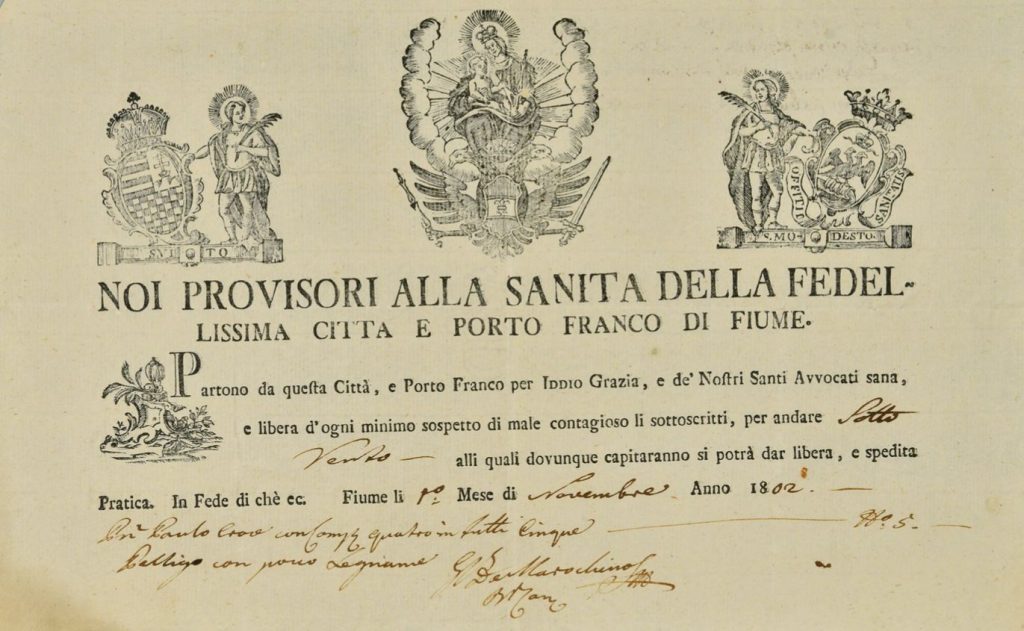 S. VITO
OFFITIUM SANITATIS
S. MODESTO.
NOI PROVISORI ALLA SANITA DELLA FEDEL-
LISSIMA CITTA E PORTO FRANCO DI FIUME.
Partono da questa Città, e Porto Franco per IDDIO Grazia, e de' Nostri Santi Avvocati sana,
e libera d'ogni minimo sospetto di male contagioso li sottoscritti, per andare Sotto
Vento alli quali dovunque capitaranno si potrà dar libera, e spedita
Pratica. In Fede di chè ec. Fiume li 1º Mese di Novembre Anno 1802.
Paulo con quatro in tutti Cinque Nº 5.
con poco Legname